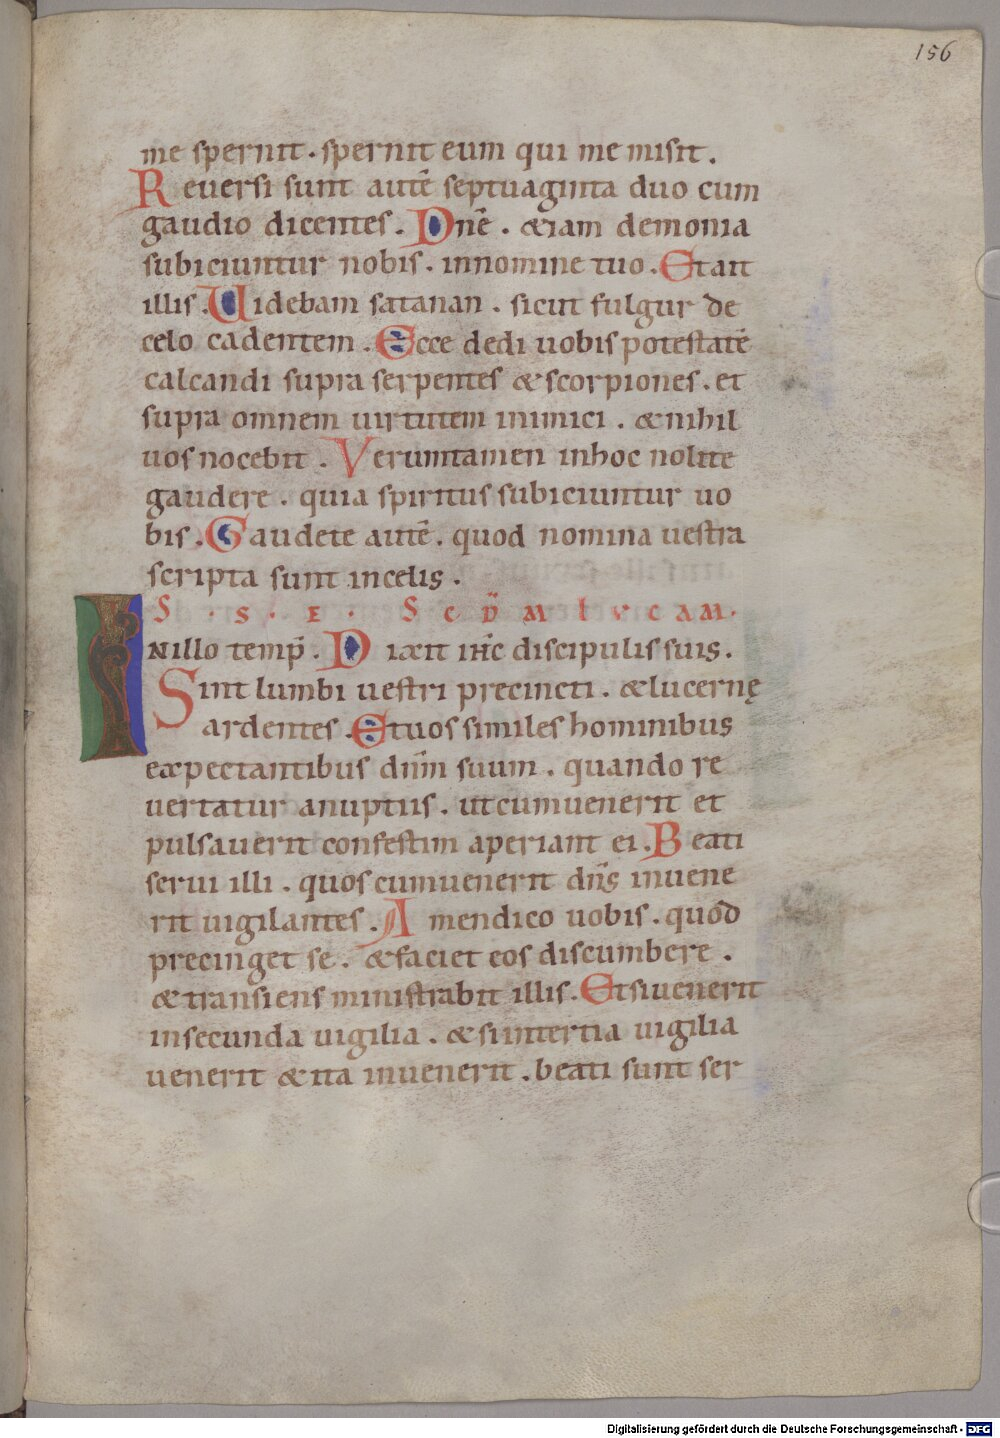 156
me spernit . spernit eum qui me misit .
Reuersi sunt autē septuaginta duo cum
gaudio dicentes . Dnē . &iam demonia
subiciuntur nobis . innomine tuo . Etait
illis . Uidebam satanan . sicut fulgur de
celo cadentem . Ecce dedi uobis potestatē
calcandi supra serpentes & scorpiones . et
supra omnem uirtutem inimici . & nihil
uos nocebit . Veruntamen inhoc nolite
gaudere . quia spiritus subiciuntur uo
bis . Gaudete autē . quod nomina uestra
scripta sunt incelis .
S . S . E . SCD̄M LVCAM .
INillo temp̄ . Dixit ih̄c discipulis suis .
Sint lumbi uestri precincti . & lucernę
ardentes . Etuos similes hominibus
expectantibus dn̄m suum . quando re
uertatur anuptiis . utcumuenerit et
pulsauerit confestim aperiant ei . Beati
serui illi . quos cumuenerit dn̄s inuene
rit uigilantes . Amendico uobis . quod
precinget se . & faciet eos discumbere .
& transiens ministrabit illis . Etsiuenerit
insecunda uigilia . & siintertia uigilia
uenerit & ita inuenerit . beati sunt ser
Digitalisierung gefördert durch die Deutsche Forschungsgemeinschaft - DFG